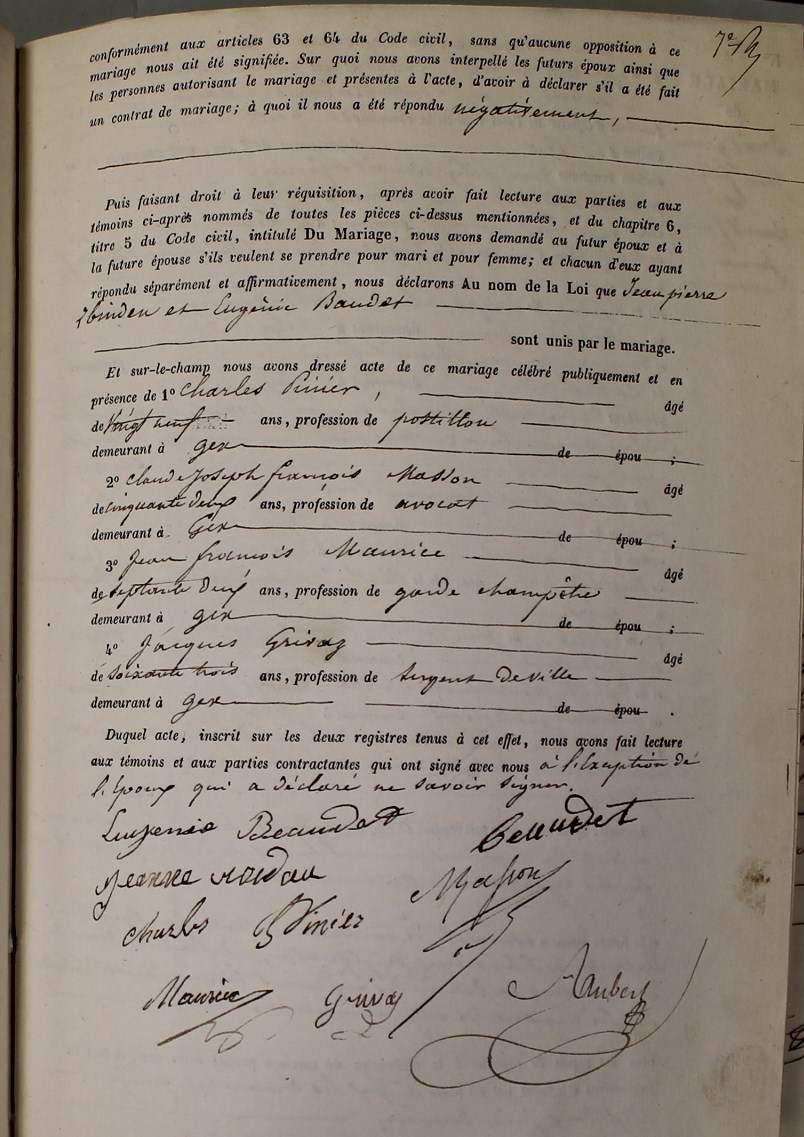 conformément aux articles 63 et 64 du Code civil, sans qu'aucune opposition à ce
mariage nous ait été signifiée. Sur quoi nous avons interpellé les futurs époux ainsi que
les personnes autorisant le mariage et présentes à l'acte, d'avoir à déclarer s'il a été fait
un contrat de mariage; à quoi il nous a été répondu négativement,
Puis faisant droit à leur réquisition, après avoir fait lecture aux parties et aux
témoins ci-après nommés de toutes les pièces ci-dessus mentionnées, et du chapitre 6,
titre 5 du Code civil, intitulé Du Mariage, nous avons demandé au futur époux et à
la future épouse s'ils veulent se prendre pour mari et pour femme; et chacun d'eux ayant
répondu séparément et affirmativement, nous déclarons Au nom de la Loi que Jean pierre
Zbinden et Eugénie Baudet
sont unis par le mariage.
Et sur-le-champ nous avons dressé acte de ce mariage célébré publiquement et en
présence de 1º Charles Vinier, âgé
de vingt neuf ans, profession de postillon
demeurant à gex de épou ;
2º claude Joseph françois Masson âgé
de cinquante deux ans, profession de avocat
demeurant à Gex de épou ;
3º Jean françois Maurice âgé
de septante deux ans, profession de garde champêtre
demeurant à gex de épou ;
4º Jacques Grivaz âgé
de soixante trois ans, profession de sergent de ville
demeurant à gex de épou .
Duquel acte, inscrit sur les deux registres tenus à cet effet, nous avons fait lecture
aux témoins et aux parties contractantes qui ont signé avec nous à l'exception de
l'époux qui a déclaré ne savoir signer.
Eugenie Beaudet Beaudet
Jeanne Masson
charles Vinier
Maurice Grivaz Aubert